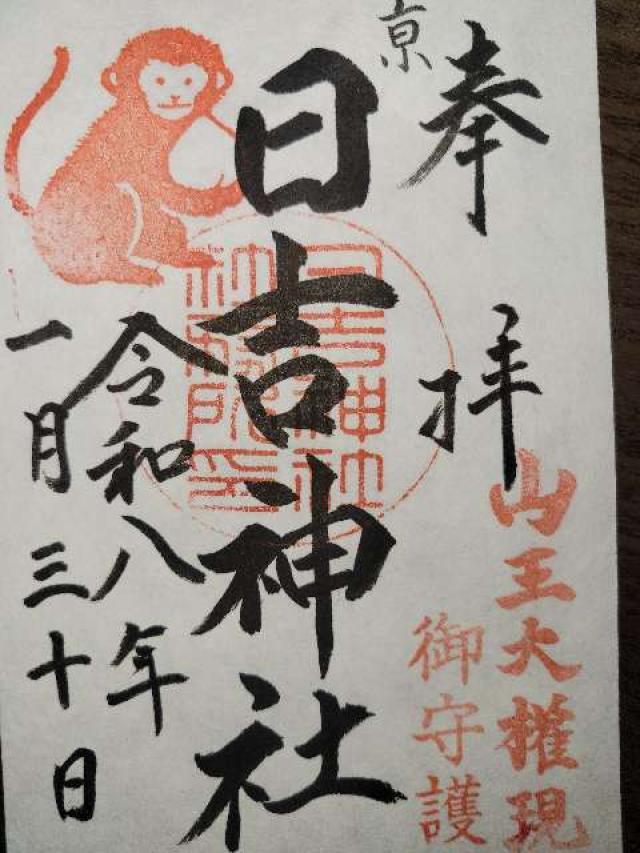 奉拝
京
山王大権現
御守護
日吉神社
日吉神社
令和八年
一月三十日